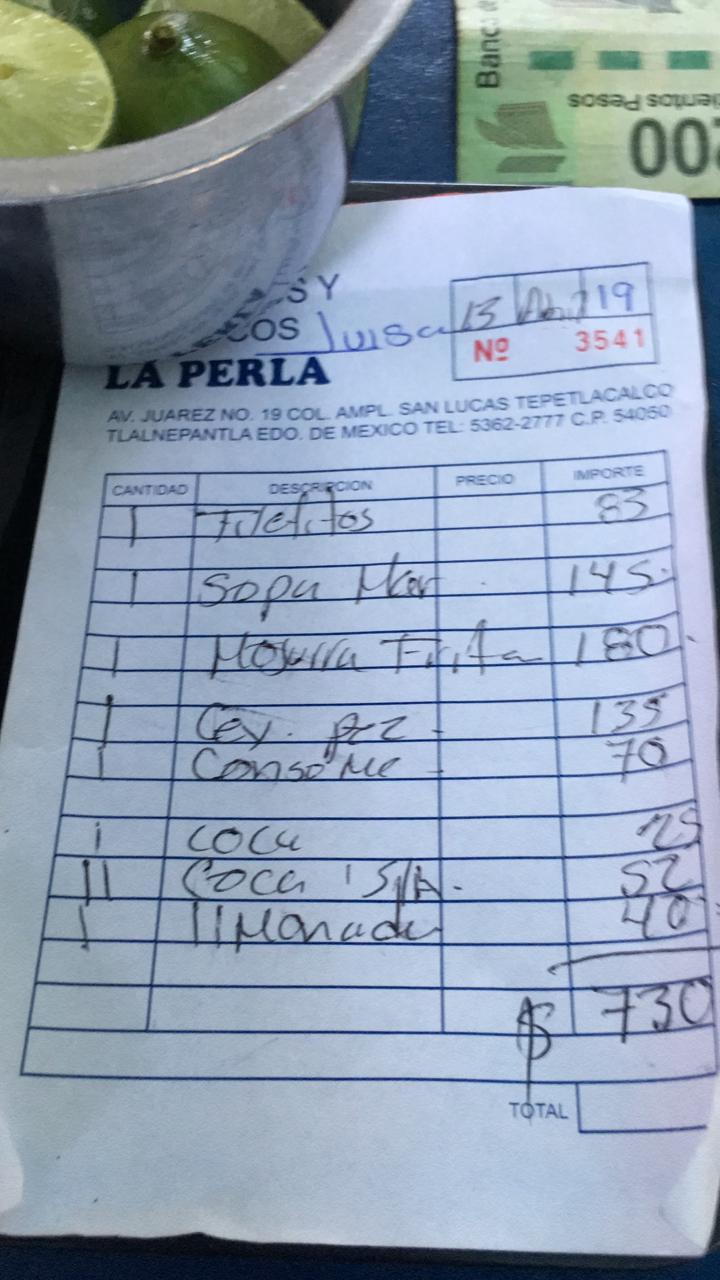 Banco de
200
cientos Pesos
S Y
COS Luisa 13 Abril 19
Nº 3541
LA PERLA
AV. JUAREZ NO. 19 COL. AMPL. SAN LUCAS TEPETLACALCO
TLALNEPANTLA EDO. DE MEXICO TEL: 5362-2777 C.P. 54050
CANTIDAD DESCRIPCION PRECIO IMPORTE
1 Filefitos 83
1 Sopa Mar 145
1 Mojarra Frita 180
1 Cev. pez 135
1 Consome 70
1 coca 25
11 Coca S/A. 52
1 limonada 40
$ 730
TOTAL